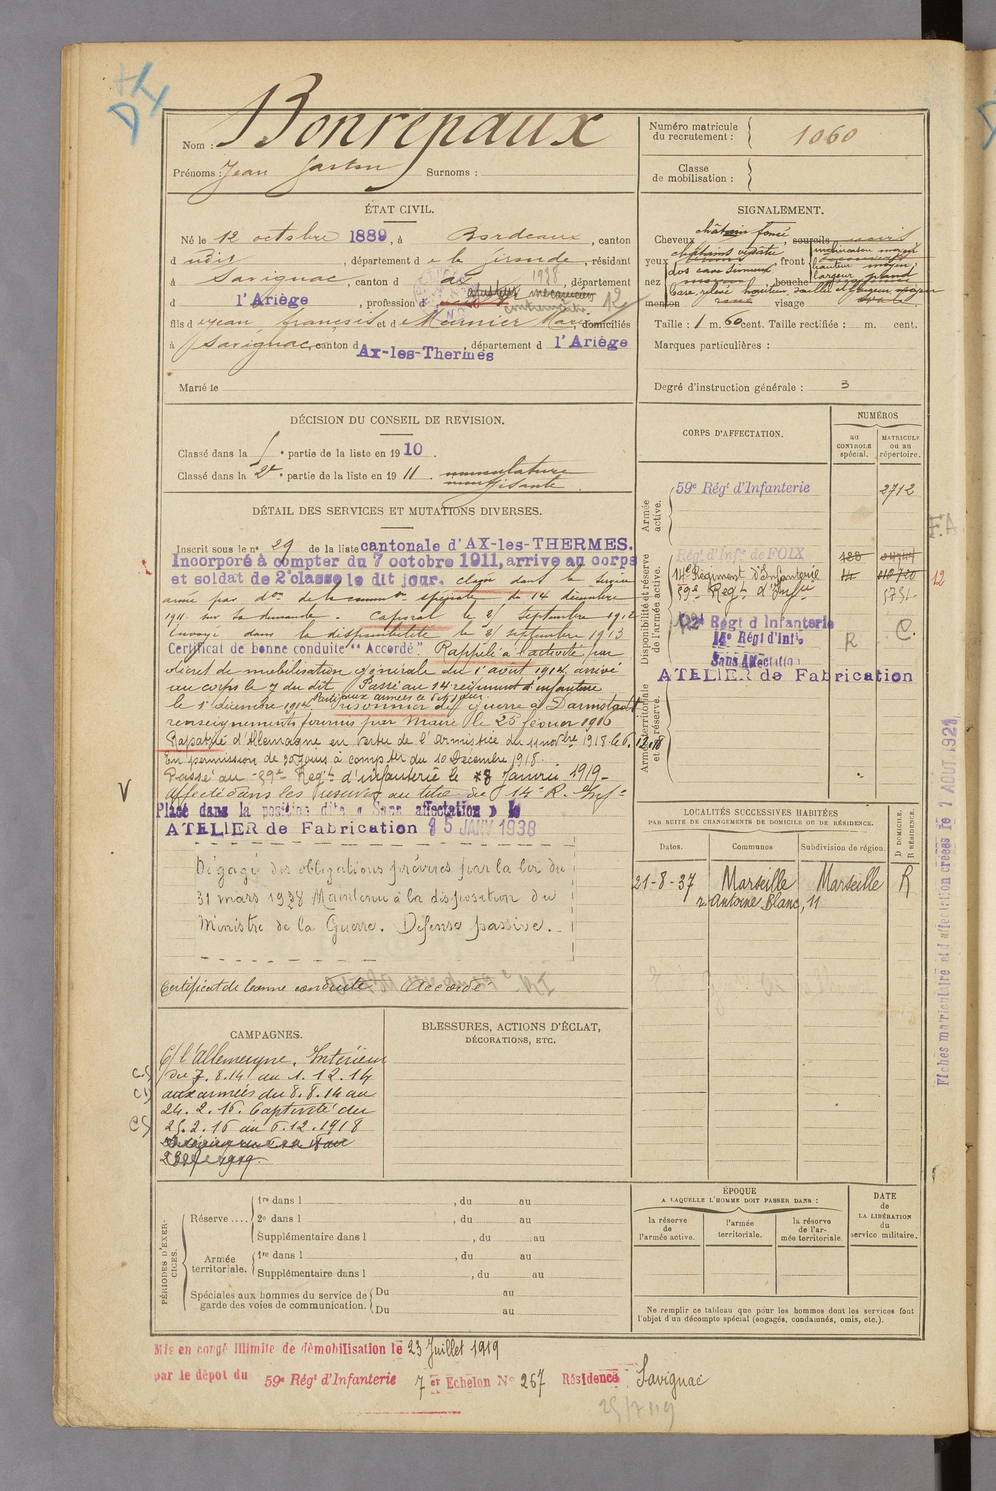 Nom : Bonrepaux
Prénoms : Jean Gaston Surnoms :
ÉTAT CIVIL.
Né le 12 octobre 1889, à Bordeaux, canton
d udit, département de la Gironde, résidant
à Savignac, canton d ax 1938, département
d l'Ariège, profession d ajusteur mécanicien
contremaître 12
fils de Jean, françois et de Meunier Marie domiciliés
à Savignac, canton d Ax-les-Thermes, département d l'Ariège
Marié le
DÉCISION DU CONSEIL DE REVISION.
Classé dans la partie de la liste en 1910.
Classé dans la 2e partie de la liste en 1911. musculature
insuffisante.
DÉTAIL DES SERVICES ET MUTATIONS DIVERSES.
Inscrit sous le no 29 de la liste cantonale d'AX-les-THERMES.
Incorporé à compter du 7 octobre 1911, arrive au corps
et soldat de 2e classe le dit jour. classé dans le service
armé par don de la common spéciale du 14 décembre
1911 sur sa demande. Caporal le 8 septembre 1912
Envoyé dans la disponibilité le 8 septembre 1913
Certificat de bonne conduite "Accordé". Rappelé à l'activité par
décret de mobilisation générale du 1er août 1914, arrivé
au corps le 7 du dit Passé au 14 régiment d'infanterie
le 1er décembre 1914, Parti aux armées ce dit jour. Prisonnier de guerre à Darmstadt
renseignements fournis par Maire le 25 février 1916
Rapatrié d'Allemagne en vertu de l'armistice du 11 novbre 1918 le 6.12.18
En permission de 30 jours à compter du 10 Décembre 1918.
Passé au 59e Regt d'infanterie le 8 Janvier 1919-
affecté dans les réserves au titre du 14e R. d'Infie
Placé dans la position dite « Sans affectation » le
ATELIER de Fabrication 25 JANV 1938
Dégagé des obligations prévues par la loi du
31 mars 1928 Maintenu à la disposition du
Ministre de la Guerre. Défense passive.
Certificat de bonne conduite Accordé
CAMPAGNES.
C/ l'Allemagne. Intérieur
du 7.8.14 au 1.12.14
aux armées du 8.8.14 au
24.2.16. Captivité du
25.2.16 au 6.12.1918
BLESSURES, ACTIONS D'ÉCLAT,
DÉCORATIONS, ETC.
PÉRIODES D'EXERCICES.
Réserve .... 1re dans l , du au
2e dans l , du au
Supplémentaire dans l , du au
Armée territoriale. 1re dans l , du au
Supplémentaire dans l , du au
Spéciales aux hommes du service de garde des voies de communication. Du au
Du au
Numéro matricule
du recrutement : 1060
Classe
de mobilisation :
SIGNALEMENT.
Cheveux châtain foncé, sourcils
yeux châtains verdâtre, front inclinaison moyen
hauteur moyen
largeur grand
nez dos cave sinueux bouche
Base relevé hauteur saillie et largeur moyen
menton rond visage ovale
Taille : 1 m. 60 cent. Taille rectifiée : m. cent.
Marques particulières :
Degré d'instruction générale : 3
CORPS D'AFFECTATION.
NUMÉROS
AU CONTROLE spécial.
MATRICULE ou au répertoire.
Armée active.
59e Régt d'Infanterie 2712
F.A.
Disponibilité et réserve de l'armée active.
Régt d'Infie de FOIX
14e Régiment d'Infanterie 14 12
59e Regt d'Infie
R2d Régt d'Infanterie
14e Régt d'Infie R C.
Sans Affectation
ATELIER de Fabrication
Armée territoriale et sa réserve.
LOCALITÉS SUCCESSIVES HABITÉES
PAR SUITE DE CHANGEMENTS DE DOMICILE OU DE RÉSIDENCE.
Dates. Communes Subdivision de région. D DOMICILE. R RÉSIDENCE.
21-8-37 Marseille Marseille R
r. Antoine Blanc, 11
Fiches matriculaire et d'affectation créées le 1 AOUT 1921.
ÉPOQUE
A LAQUELLE L'HOMME DOIT PASSER DANS :
la réserve de l'armée active.
l'armée territoriale.
la réserve de l'armée territoriale.
DATE de LA LIBÉRATION du service militaire.
Ne remplir ce tableau que pour les hommes dont les services font
l'objet d'un décompte spécial (engagés, condamnés, omis, etc.).
Mis en congé illimité de démobilisation le 23 Juillet 1919
par le dépot du 59e Régt d'Infanterie 7 er Echelon No 267 Résidence Savignac
25/7 119